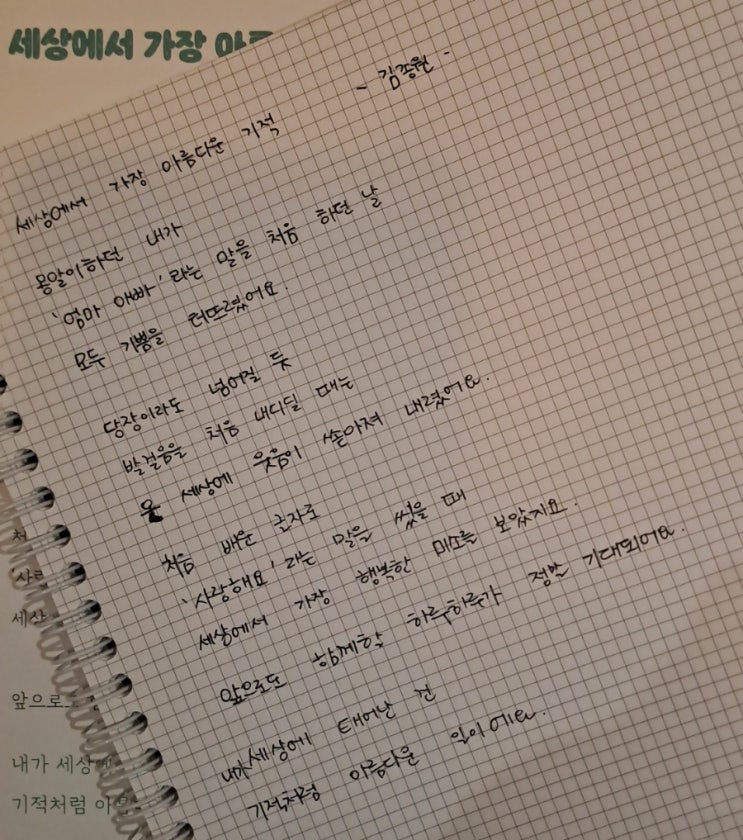 세상에서 가장 아
- 김종원 -
세상에서 가장 아름다운 기적
옹알이하던 내가
'엄마 아빠'라는 말을 처음 하던 날
모두 기쁨을 터뜨렸어요.
당장이라도 넘어질 듯
발걸음을 처음 내디딜 때는
온 세상에 웃음이 쏟아져 내렸어요.
처음 배운 글자로
'사랑해요'라는 말을 썼을 때
세상에서 가장 행복한 미소를 보았지요
앞으로도 함께할 하루하루가 정말 기대되어요.
내가 세상에 태어난 건
기적처럼 아름다운 일이에요.
처
사랑
세상
앞으로
내가 세상에
기적처럼 아